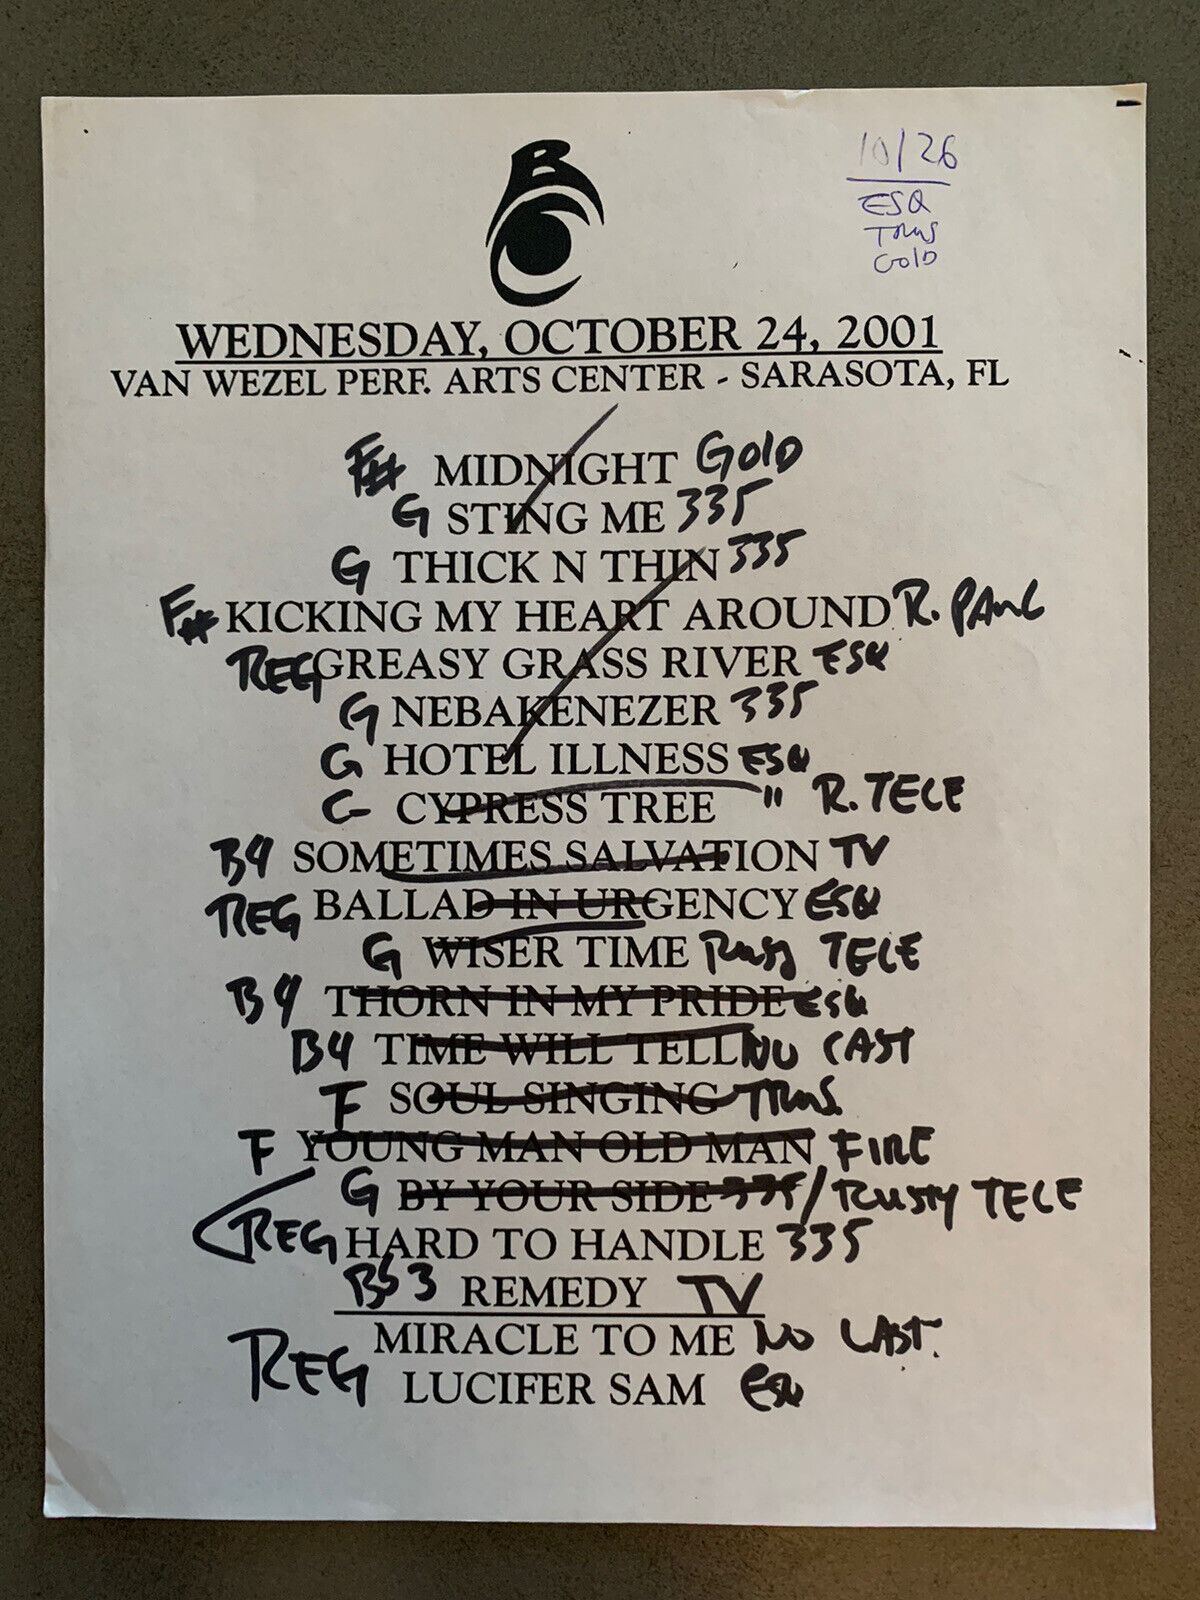 BC
10/26
ESQ
TRUS
GOLD
WEDNESDAY, OCTOBER 24, 2001
VAN WEZEL PERF. ARTS CENTER - SARASOTA, FL
F# MIDNIGHT GOLD
G STING ME 335
G THICK N THIN 335
F# KICKING MY HEART AROUND R. PAUL
REG GREASY GRASS RIVER ESQ
G NEBAKENEZER 335
G HOTEL ILLNESS ESQ
C- CYPRESS TREE " R. TELE
B4 SOMETIMES SALVATION TV
REG BALLAD IN URGENCY ESQ
G WISER TIME RUSTY TELE
B4 THORN IN MY PRIDE ESQ
B4 TIME WILL TELL NU CAST
F SOUL SINGING TRUS.
F YOUNG MAN OLD MAN FIRE
G BY YOUR SIDE 335/RUSTY TELE
REG HARD TO HANDLE 335
BS3 REMEDY TV
MIRACLE TO ME NO CAST.
REG LUCIFER SAM ESQ